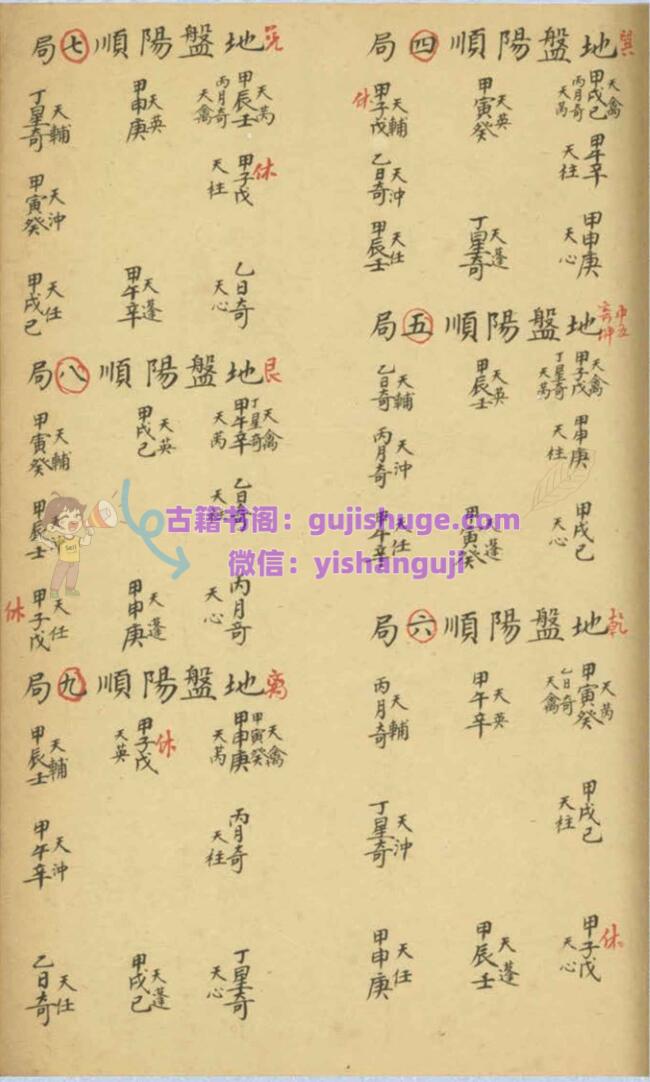 巽地盤陽順四局
天禽 甲戌己 丙月奇 天芮
天英 甲寅癸
天輔 甲子戊 休
甲午辛 天柱
天沖 乙日奇
甲申庚 天心
天蓬 丁星奇
天任 甲辰壬
中五寄坤
地盤陽順五局
天禽 甲子戊 丁星奇 天芮
天英 甲辰壬
天輔 乙日奇
甲申庚 天柱
天沖 丙月奇
甲戌己 天心
天蓬 甲寅癸
天任 甲午辛
乾地盤陽順六局
天芮 甲寅癸 乙日奇 天禽
天英 甲午辛
天輔 丙月奇
甲戌己 天柱
天沖 丁星奇
休 甲子戊 天心
天蓬 甲辰壬
天任 甲申庚
兌地盤陽順七局
天芮 甲辰壬 丙月奇 天禽
天英 甲申庚
天輔 丁星奇
休 甲子戊 天柱
天沖 甲寅癸
乙日奇 天心
天蓬 甲午辛
天任 甲戌己
艮地盤陽順八局
天禽 丁星奇 甲午辛 天芮
天英 甲戌己
天輔 甲寅癸
乙日奇 天
甲辰壬
丙月奇 天心
天蓬 甲申庚
天任 甲子戊 休
離地盤陽順九局
天禽 甲寅癸 甲申庚 天芮
休 甲子戊 天英
天輔 甲辰壬
丙月奇 天柱
天沖 甲午辛
丁星奇 天心
天蓬 甲戌己
天任 乙日奇
古籍书阁：gujishuge.com
微信：yishanguji
Sell